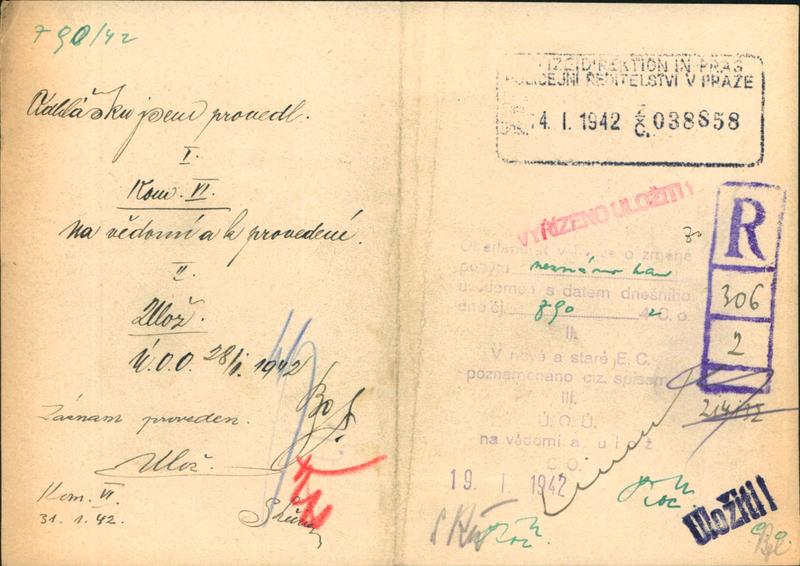 790/42
Odhlášku jsem provedl.
I.
Kom. VI.
na vědomí a k provedení.
II.
Ulož.
Ú.O.O. 28/I. 1942
Záznam proveden.
Ulož.
Kom. VI
31. 1. 42.
POLIZEIDIREKTION IN PRAG
POLICEJNÍ ŘEDITELSTVÍ V PRAZE
14. I. 1942 Z. Č. 038858
VYŘÍZENO ULOŽITI!
R
306
2
214/42
Oberlandrat v Praze o změně
pobytu neznámo kam
uvědomen s datem dnešního
dne čj. 790 42 C. o
II.
V nové a staré E. C.
poznamenáno ciz. spisem
III.
Ú. O. Ú.
na vědomí a ulož
C. O.
19. I. 1942
Uložiti!